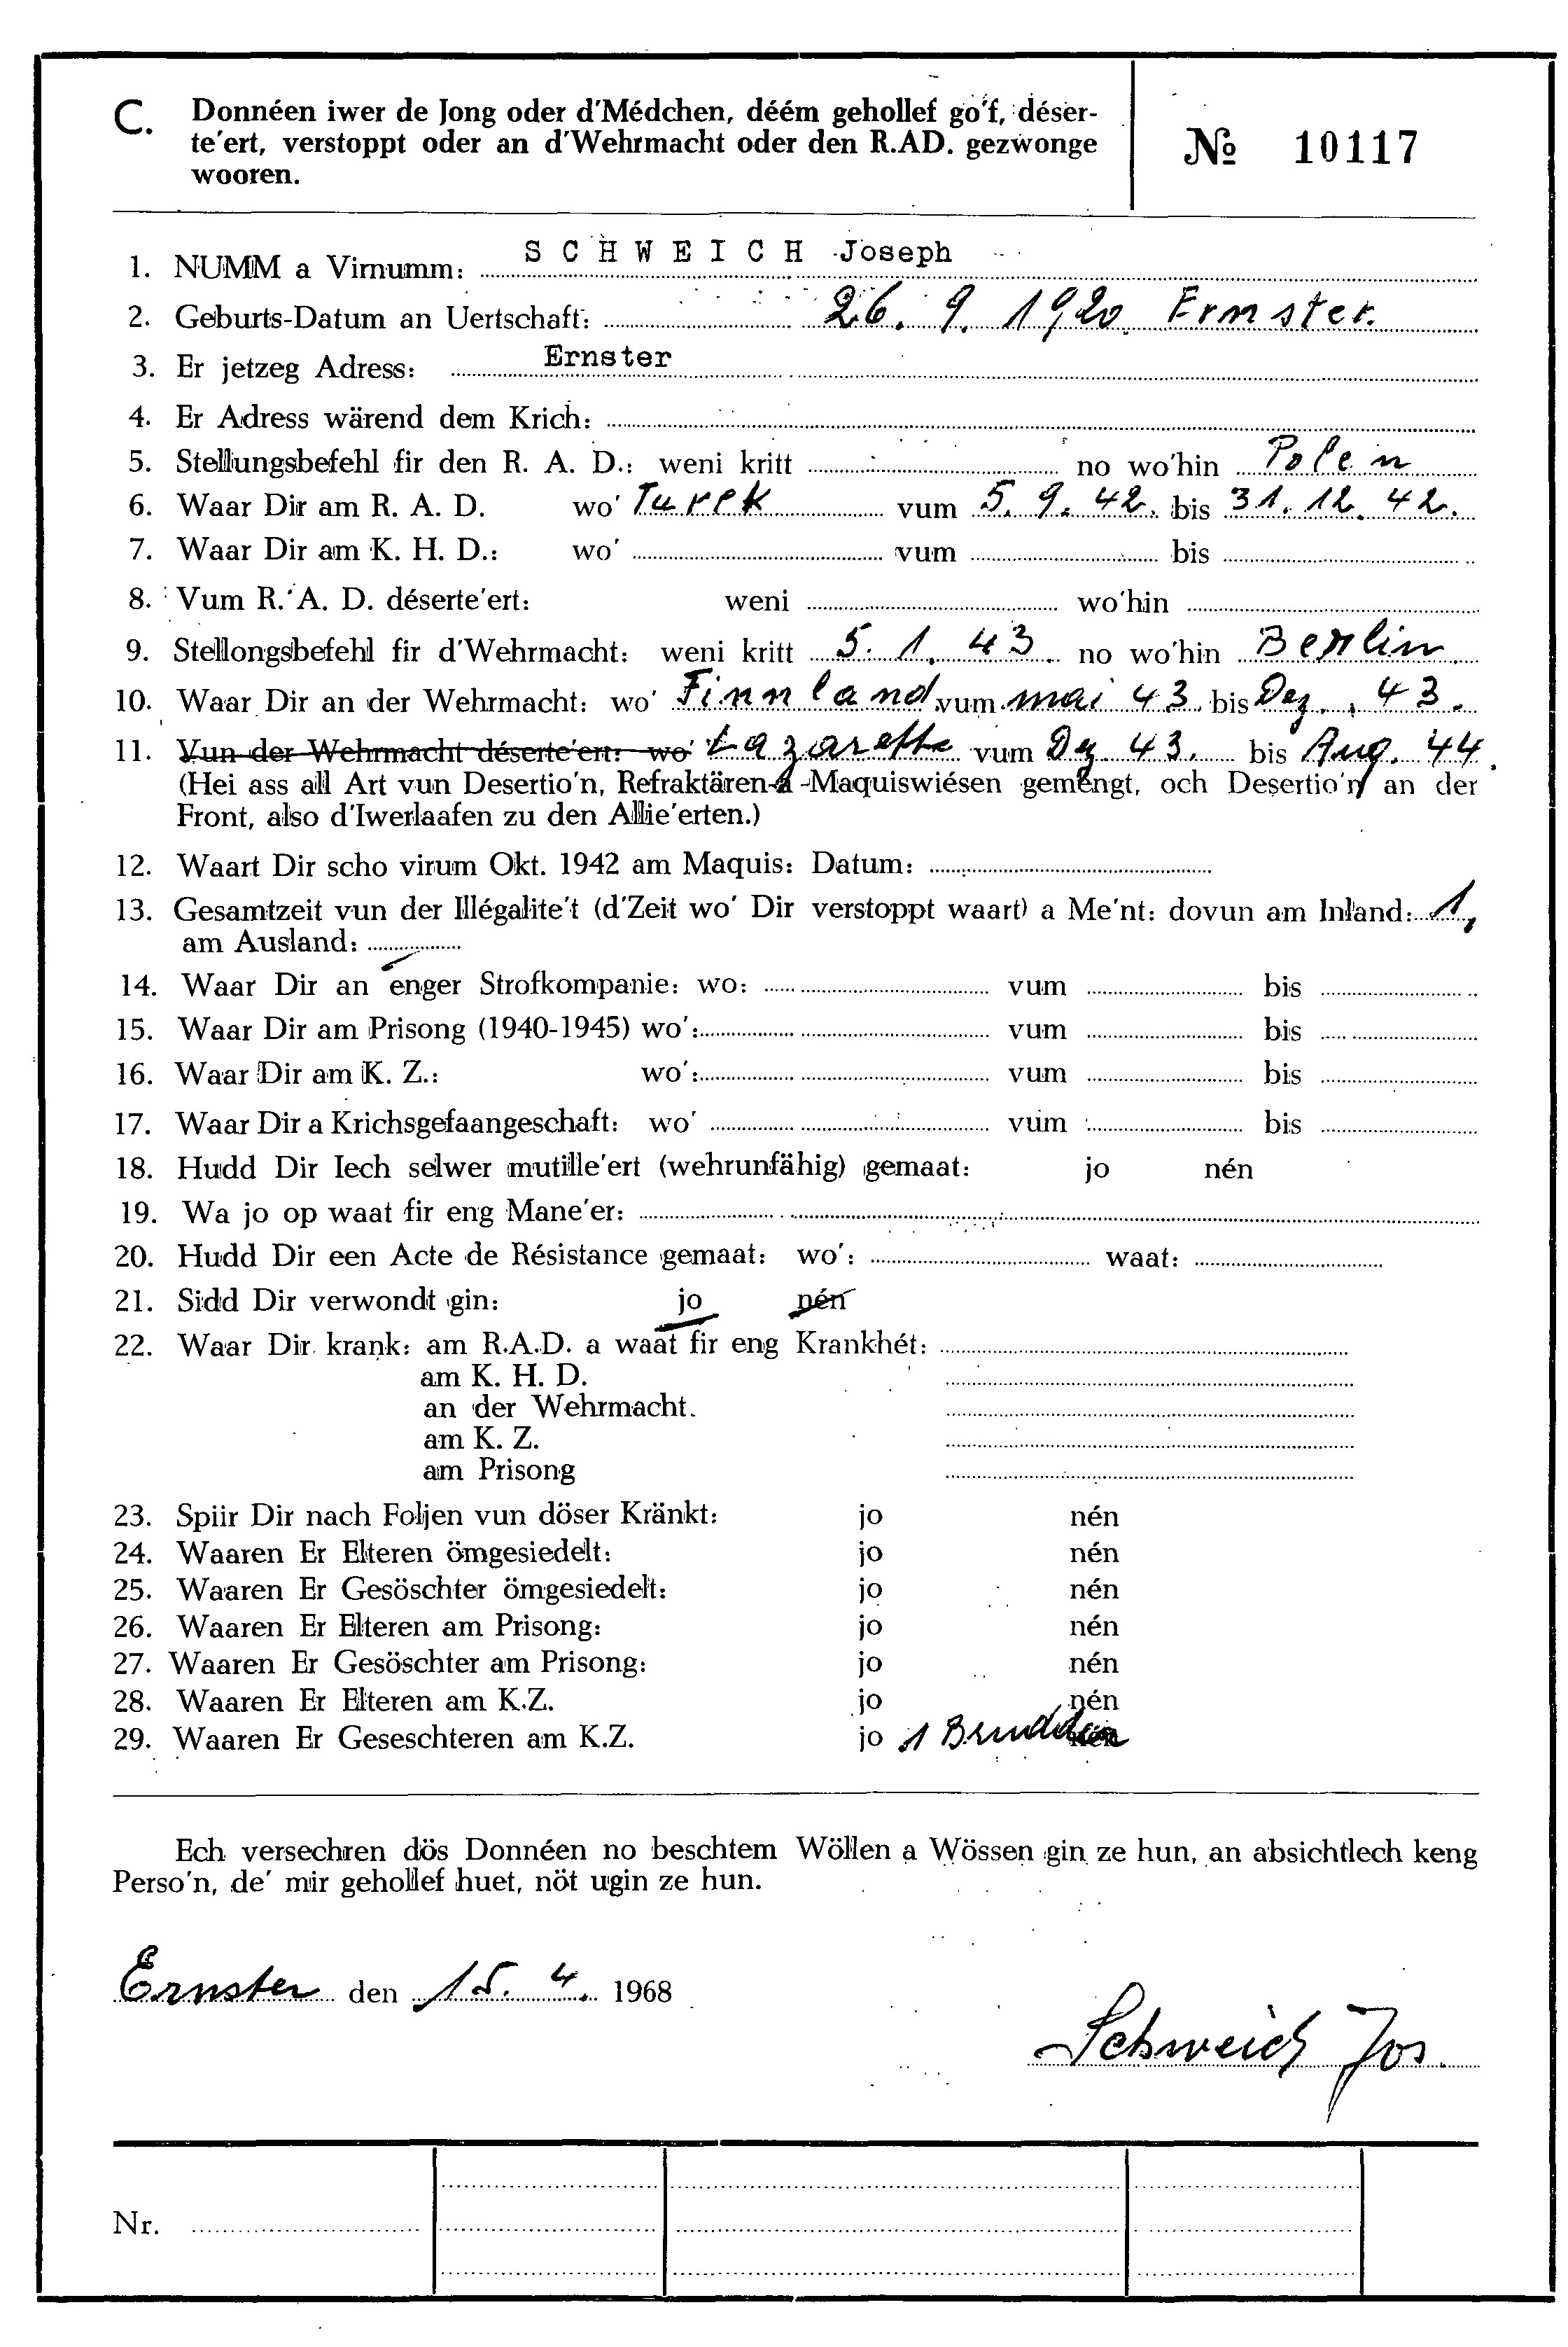 C. Donnéen iwer de Jong oder d'Médchen, déém gehollef go'f, déser-
te'ert, verstoppt oder an d'Wehrmacht oder den R.AD. gezwonge
wooren.
№ 10117
1. NUMM a Virnumm: SCHWEICH Joseph
2. Geburts-Datum an Uertschaft: 26. 9. 1920 Ernster.
3. Er jetzeg Adress: Ernster
4. Er Adress wärend dem Krich:
5. Stellungsbefehl fir den R. A. D.: weni kritt no wo'hin Polen
6. Waar Dir am R. A. D. wo' Turek vum 5. 9. 42. bis 31. 12. 42.
7. Waar Dir am K. H. D.: wo' vum bis
8. Vum R. A. D. déserte'ert: weni wo'hin
9. Stellongsbefehl fir d'Wehrmacht: weni kritt 5. 1. 43. no wo'hin Berlin
10. Waar Dir an der Wehrmacht: wo' Finnland vum mai 43. bis Dez. 43.
11. Vun der Wehrmacht déserte'ert: wo' Lazarette vum Dez 43. bis Aug. 44.
(Hei ass all Art vun Desertio'n, Refraktären-a -Maquiswiésen gemengt, och Desertio'n an der
Front, also d'Iwerlaafen zu den Allie'erten.)
12. Waart Dir scho virum Okt. 1942 am Maquis: Datum:
13. Gesamtzeit vun der Illégalite't (d'Zeit wo' Dir verstoppt waart) a Me'nt: dovun am Inland: 1,
am Ausland:
14. Waar Dir an enger Strofkompanie: wo: vum bis
15. Waar Dir am Prisong (1940-1945) wo': vum bis
16. Waar Dir am K. Z.: wo': vum bis
17. Waar Dir a Krichsgefaangeschaft: wo' vum bis
18. Hudd Dir Iech selwer mutille'ert (wehrunfähig) gemaat: jo nén
19. Wa jo op waat fir eng Mane'er:
20. Hudd Dir een Acte de Résistance gemaat: wo': waat:
21. Sidd Dir verwondt gin: jo nén
22. Waar Dir krank: am R.A.D. a waat fir eng Krankhét:
am K. H. D.
an der Wehrmacht.
am K. Z.
am Prisong
23. Spiir Dir nach Foljen vun döser Kränkt: jo nén
24. Waaren Er Elteren ömgesiedelt: jo nén
25. Waaren Er Gesöschter ömgesiedelt: jo nén
26. Waaren Er Elteren am Prisong: jo nén
27. Waaren Er Gesöschter am Prisong: jo nén
28. Waaren Er Elteren am K.Z. jo nén
29. Waaren Er Geseschteren am K.Z. jo 1 nén
Ech versechren dös Donnéen no beschtem Wöllen a Wössen gin ze hun, an absichtlech keng
Perso'n, de' mir gehollef huet, nöt ugin ze hun.
Ernster den 15. 4. 1968
Schweich Jos.
Nr.